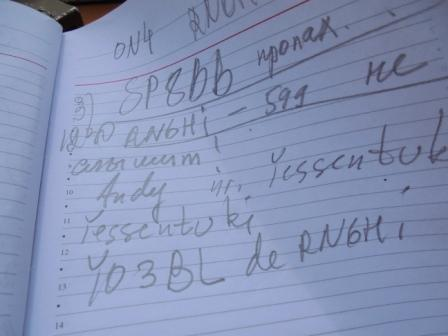 ON4
3) SP8bb пропал.
1830 RN6Hi - 599 не
слышит!
Andy iessentuki
iessentuki
YO3BL de RN6Hi
10
11
12
13
14